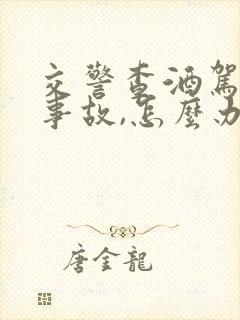 交警查酒駕
事故,怎麼办
唐金龍